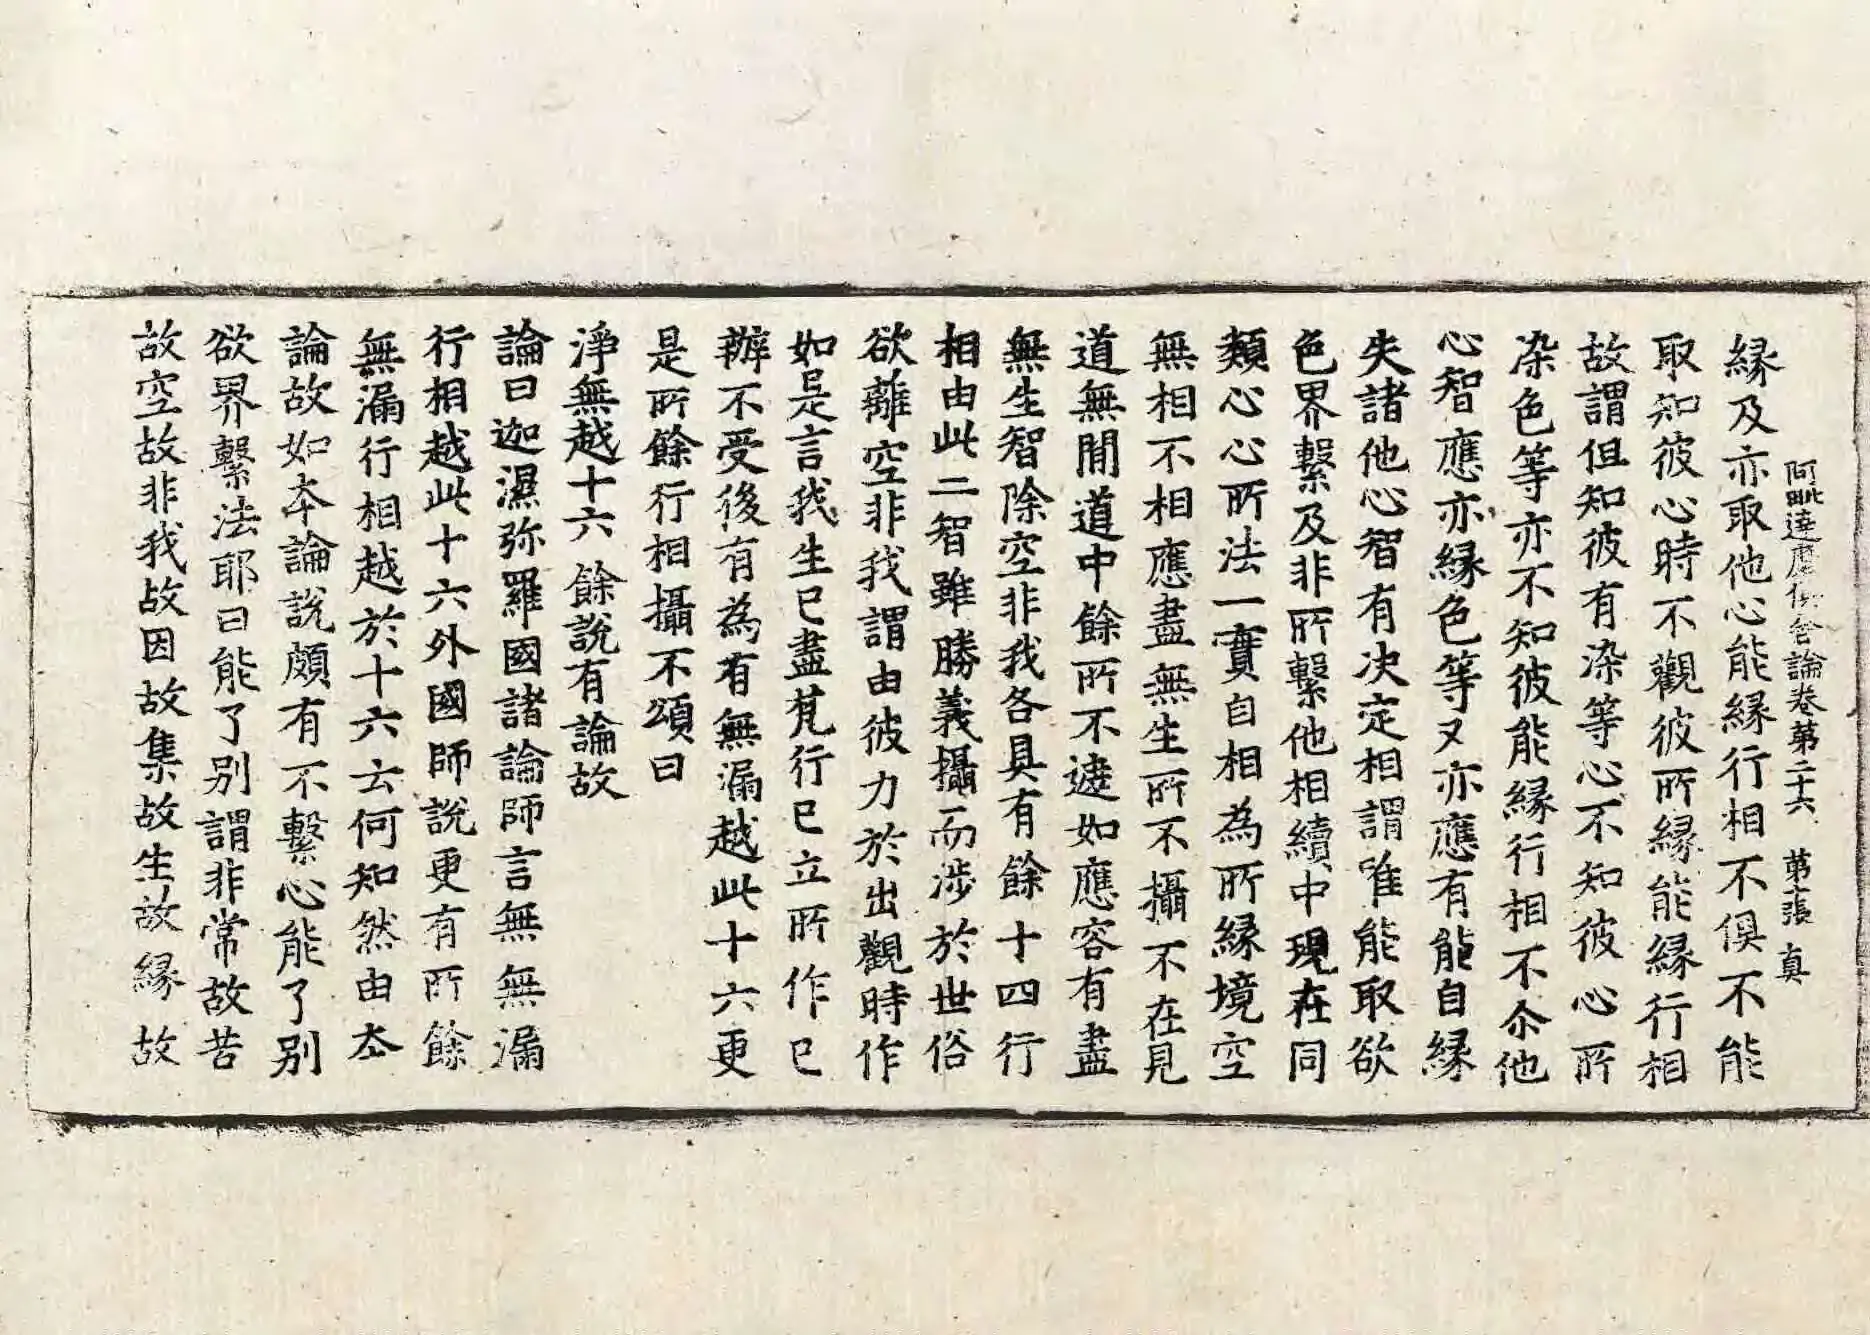 阿毗達磨俱舍論卷第二十六 第十張 真
縁及亦取他心能縁行相不俱不能
取知彼心時不觀彼所縁能縁行相
故謂但知彼有染等心不知彼心所
染色等亦不知彼能縁行相不尒他
心智應亦縁色等又亦應有能自縁
失諸他心智有決定相謂唯能取欲
色界繫及非所繫他相續中現在同
類心心所法一實自相為所縁境空
無相不相應盡無生所不攝不在見
道無間道中餘所不遮如應容有盡
無生智除空非我各具有餘十四行
相由此二智雖勝義攝而涉於世俗
欲離空非我謂由彼力於出觀時作
如是言我生已盡梵行已立所作已
辦不受後有為有無漏越此十六更
是所餘行相攝不頌曰
淨無越十六 餘說有論故
論曰迦濕弥羅國諸論師言無無漏
行相越此十六外國師說更有所餘
無漏行相越於十六云何知然由夲
論故如夲論說頗有不繫心能了別
欲界繫法耶曰能了別謂非常故苦
故空故非我故因故集故生故縁故